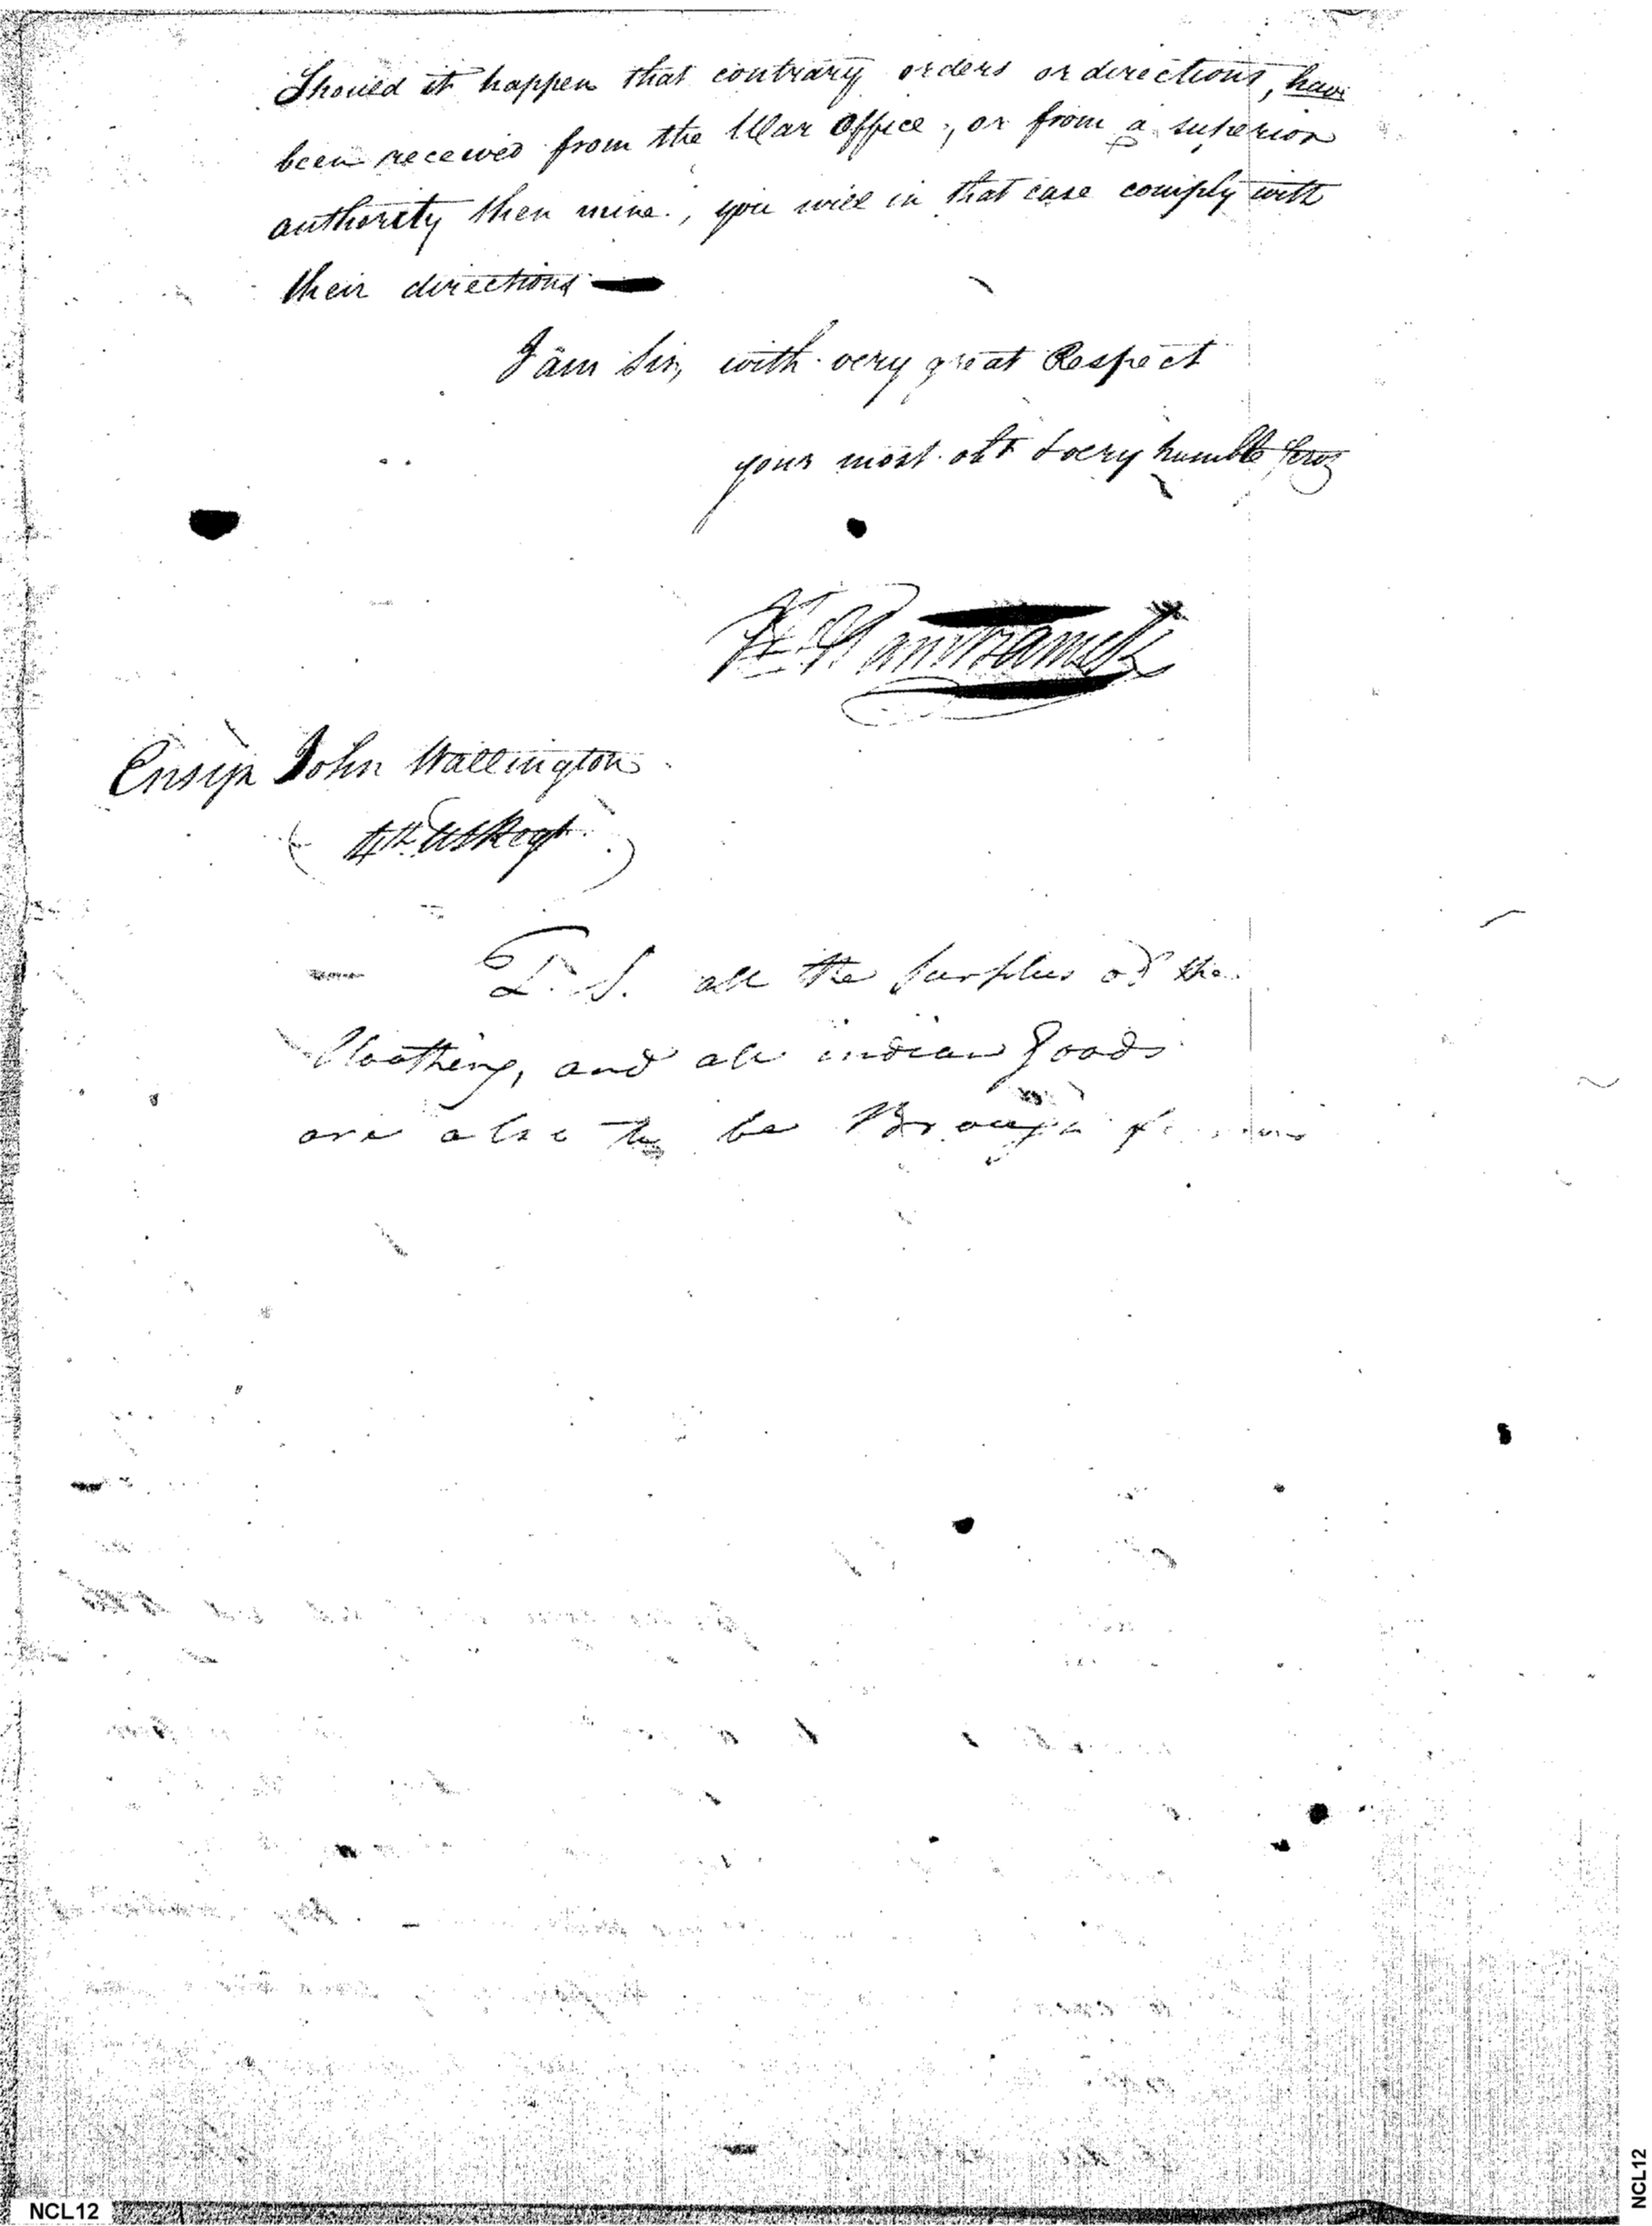 Should it happen that contrary orders or directions, have
been received from the War Office, or from a superior
authority then mine, you will in that case comply with
their directions
I am Sir, with very great Respect
your most obt & very humble Serv
Ensign John Wallington
(4th US Regt.)
P.S. all the surplus of the
Cloathing, and all indian Goods
are also to be Brough
NCL12
NCL12